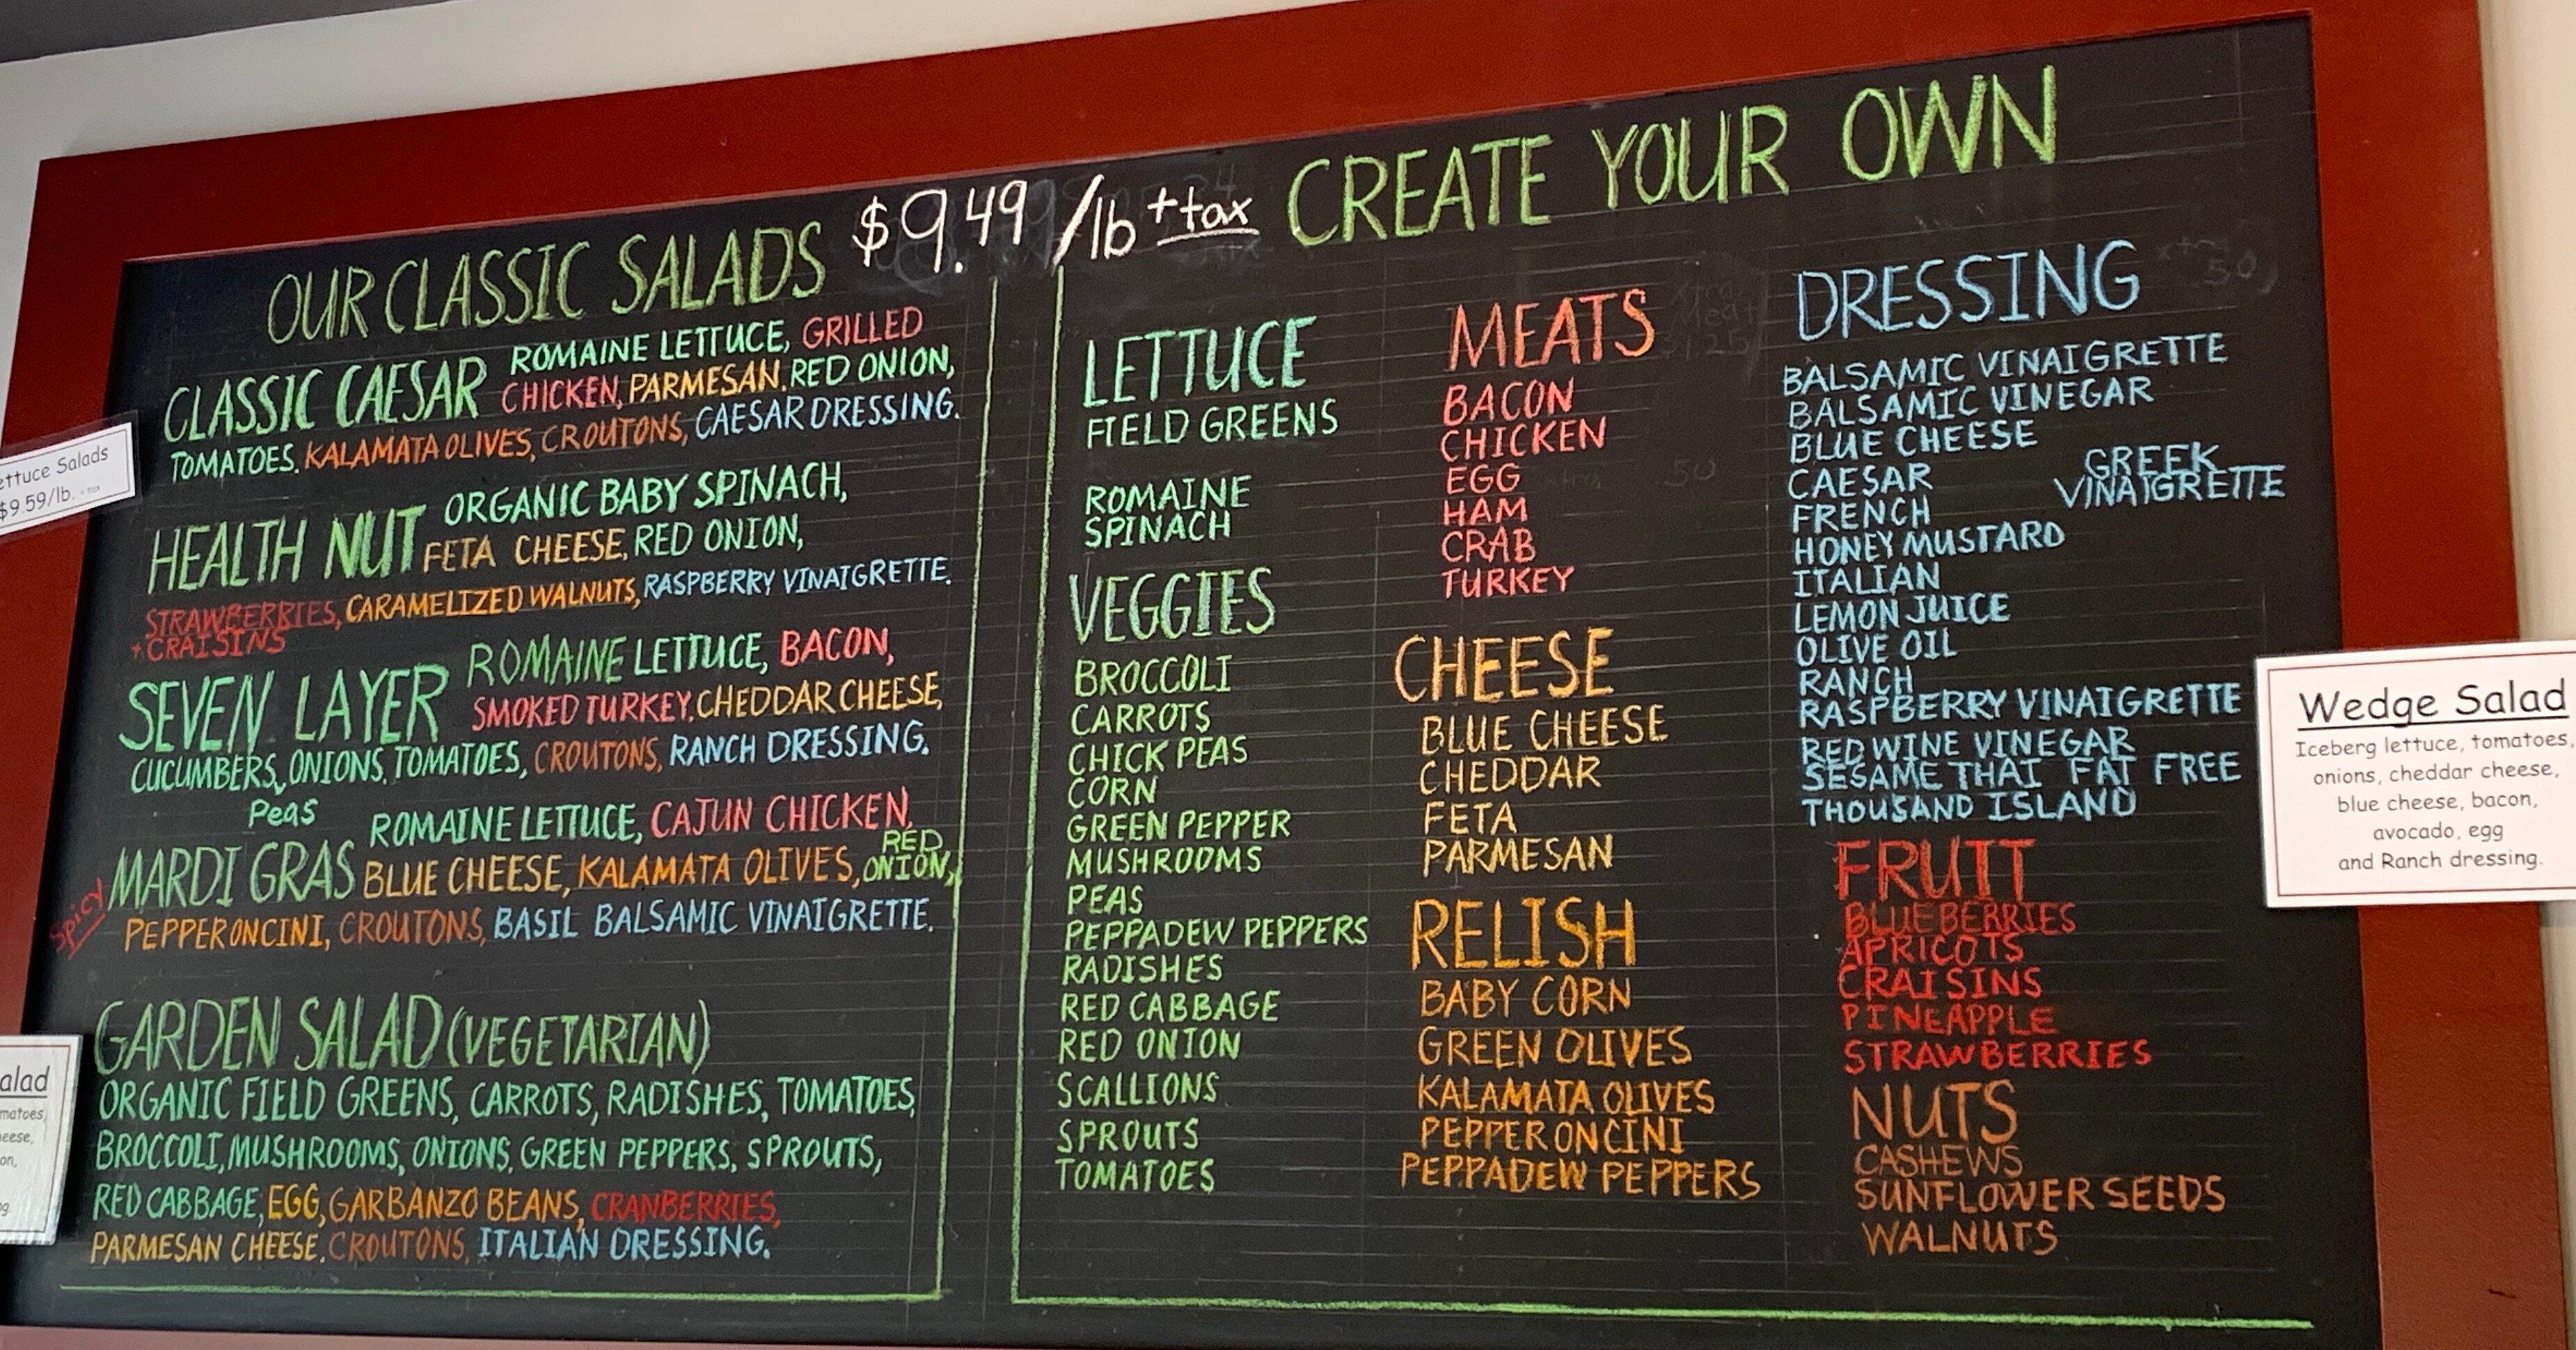 OUR CLASSIC SALADS
$9.49/lb + tax
CREATE YOUR OWN
CLASSIC CAESAR ROMAINE LETTUCE, GRILLED
CHICKEN, PARMESAN, RED ONION,
TOMATOES, KALAMATA OLIVES, CROUTONS, CAESAR DRESSING.
HEALTH NUT ORGANIC BABY SPINACH,
FETA CHEESE, RED ONION,
STRAWBERRIES, CARAMELIZED WALNUTS, RASPBERRY VINAIGRETTE.
+ CRAISINS
SEVEN LAYER ROMAINE LETTUCE, BACON,
SMOKED TURKEY, CHEDDAR CHEESE,
CUCUMBERS, ONIONS, TOMATOES, CROUTONS, RANCH DRESSING.
Peas
ROMAINE LETTUCE, CAJUN CHICKEN,
MARDI GRAS BLUE CHEESE, KALAMATA OLIVES, RED ONION,
SPICY
PEPPERONCINI, CROUTONS, BASIL BALSAMIC VINAIGRETTE.
GARDEN SALAD (VEGETARIAN)
ORGANIC FIELD GREENS, CARROTS, RADISHES, TOMATOES,
BROCCOLI, MUSHROOMS, ONIONS, GREEN PEPPERS, SPROUTS,
RED CABBAGE, EGG, GARBANZO BEANS, CRANBERRIES,
PARMESAN CHEESE, CROUTONS, ITALIAN DRESSING.
LETTUCE
FIELD GREENS
ROMAINE
SPINACH
VEGGIES
BROCCOLI
CARROTS
CHICK PEAS
CORN
GREEN PEPPER
MUSHROOMS
PEAS
PEPPADEW PEPPERS
RADISHES
RED CABBAGE
RED ONION
SCALLIONS
SPROUTS
TOMATOES
MEATS
BACON
CHICKEN
EGG
HAM
CRAB
TURKEY
CHEESE
BLUE CHEESE
CHEDDAR
FETA
PARMESAN
RELISH
BABY CORN
GREEN OLIVES
KALAMATA OLIVES
PEPPERONCINI
PEPPADEW PEPPERS
DRESSING
BALSAMIC VINAIGRETTE
BALSAMIC VINEGAR
BLUE CHEESE
CAESAR
GREEK
VINAIGRETTE
FRENCH
HONEY MUSTARD
ITALIAN
LEMON JUICE
OLIVE OIL
RANCH
RASPBERRY VINAIGRETTE
RED WINE VINEGAR
SESAME THAI FAT FREE
THOUSAND ISLAND
FRUIT
BLUEBERRIES
APRICOTS
CRAISINS
PINEAPPLE
STRAWBERRIES
NUTS
CASHEWS
SUNFLOWER SEEDS
WALNUTS
Salads
$9.59/lb. + tax
Wedge Salad
Iceberg lettuce, tomatoes,
onions, cheddar cheese,
blue cheese, bacon,
avocado, egg
and Ranch dressing.